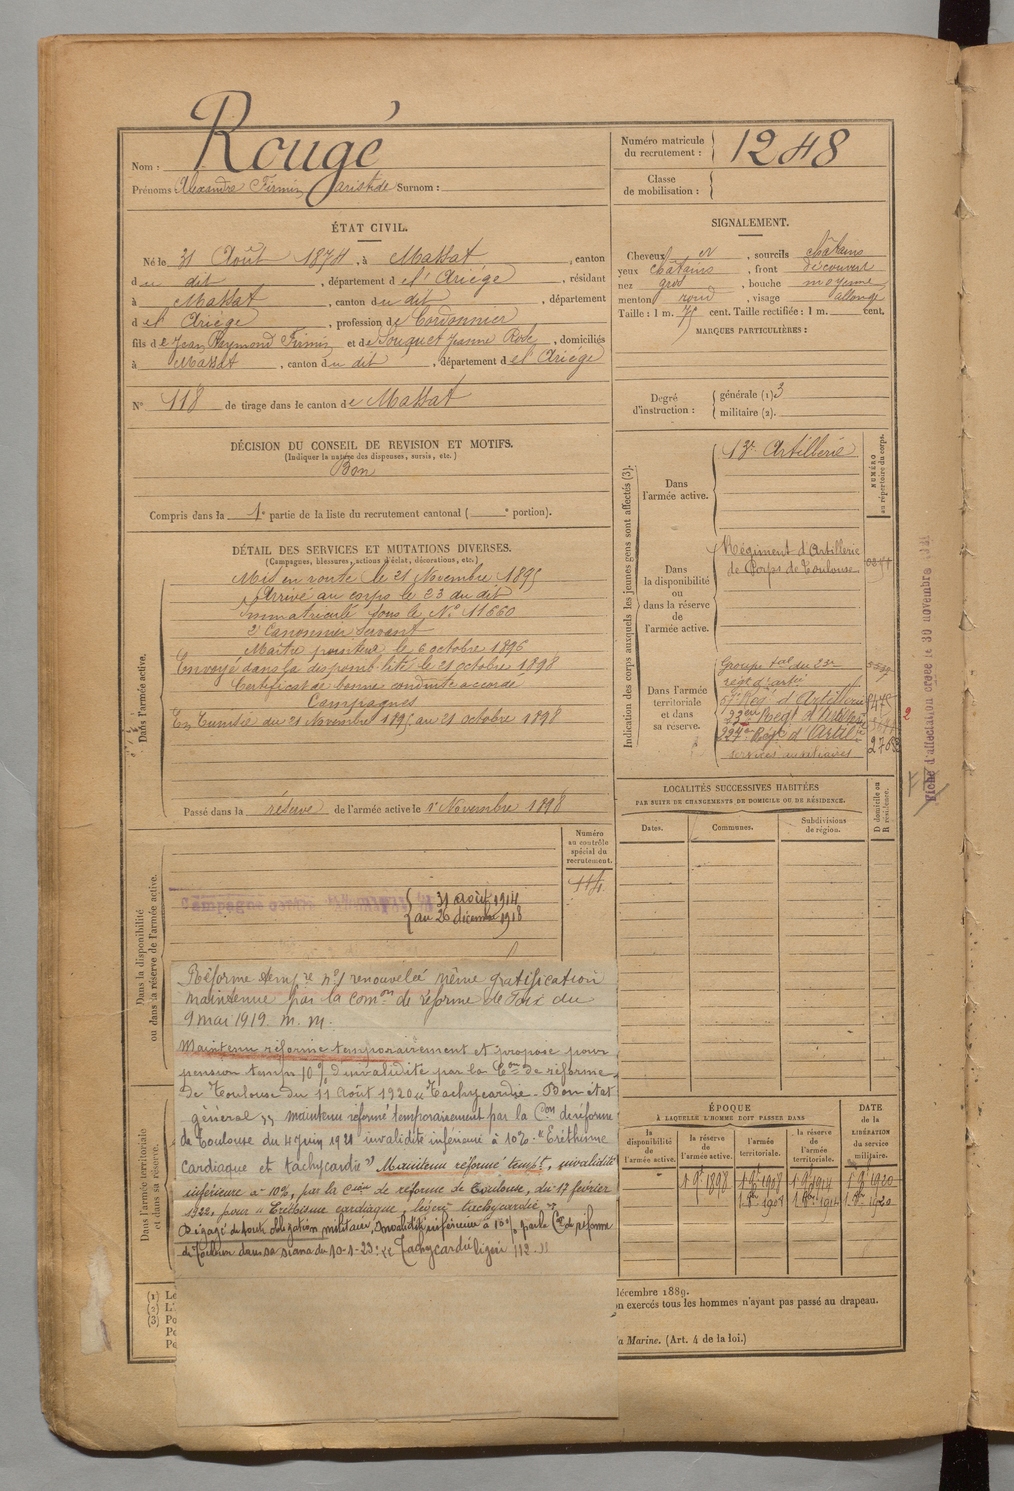 Nom : Rougé
Prénoms : Alexandre Firmin Aristide Surnom :
Numéro matricule du recrutement : 1248
Classe de mobilisation :
ÉTAT CIVIL.
Né le 31 Août 1874, à Massat, canton
du dit, département de l'Ariège, résidant
à Massat, canton du dit, département
de l'Ariège, profession de Cordonnier
fils de Jean Raymond Firmin et de Souquet Jeanne Rose, domiciliés
à Massat, canton du dit, département de l'Ariège
N° 118 de tirage dans le canton de Massat
DÉCISION DU CONSEIL DE REVISION ET MOTIFS.
(Indiquer la nature des dispenses, sursis, etc.)
Bon
Compris dans la 1e partie de la liste du recrutement cantonal ( e portion).
SIGNALEMENT.
Cheveux et, sourcils châtains
yeux châtains, front découvert
nez gros, bouche moyenne
menton rond, visage allongé
Taille : 1 m. 71 cent. Taille rectifiée : 1 m. cent.
MARQUES PARTICULIÈRES :
Degré d'instruction : générale (1) 3
militaire (2).
DÉTAIL DES SERVICES ET MUTATIONS DIVERSES.
(Campagnes, blessures, actions d'éclat, décorations, etc.)
Dans l'armée active.
Mis en route le 21 Novembre 1895
Arrivé au corps le 23 du dit
Immatriculé sous le N° 11660
2e Canonnier servant
Maître pointeur le 6 octobre 1896
Envoyé dans la disponibilité le 21 octobre 1898
Certificat de bonne conduite accordé
Campagnes
En Tunisie du 21 Novembre 1895 au 21 octobre 1898
Passé dans la réserve de l'armée active le 1er Novembre 1898
Indication des corps auxquels les jeunes gens sont affectés (3).
NUMÉRO au répertoire du corps.
Dans l'armée active.
13e Artillerie
Dans la disponibilité ou dans la réserve de l'armée active.
Régiment d'Artillerie
de Corps de Toulouse
Dans l'armée territoriale et dans sa réserve.
Groupe tal du 23e
régt d'artie
57e Régt d'Artillerie
23eme Regt d'Artillerie
224e Régt d'Artillie
services auxiliaires
Fiche d'affectation créée le 30 novembre
LOCALITÉS SUCCESSIVES HABITÉES
PAR SUITE DE CHANGEMENTS DE DOMICILE OU DE RÉSIDENCE.
Dates.
Communes.
Subdivisions de région.
D domicile ou R résidence.
Dans la disponibilité ou dans la réserve de l'armée active.
Numéro au contrôle spécial du recrutement.
114
31 août 1914
au 26 décembre 1918
Réforme tempre n°1 renouvelée même gratification
maintenue par la comon de réforme de Foix du
9 mai 1919. M. M.
Maintenu réformé temporairement et proposé pour
pension temp 10% d'invalidité par la Con de réforme
de Toulouse du 11 Août 1920 "Tachycardie. Bon état
général" maintenu réformé temporairement par la Con de réforme
de Toulouse du 4 juin 1921 invalidité inférieure à 10%: "Eréthisme
cardiaque et tachycardie" Maintenu réformé tempt, invalidité
inférieure à 10%, par la Coon de réforme de Toulouse, du 17 février
1922, pour "Erétisme cardiaque, légère tachycardie"
Dégagé de toute obligation militaire, invalidité inférieure à 10% par la Con de réforme
de Toulouse dans sa séance du 10-1-23: "Tachycardie légère 112"
Dans l'armée territoriale et dans sa réserve.
ÉPOQUE
À LAQUELLE L'HOMME DOIT PASSER DANS
la disponibilité de l'armée active.
la réserve de l'armée active.
l'armée territoriale.
la réserve de l'armée territoriale.
DATE de la LIBÉRATION du service militaire.
décembre 1889.
exercés tous les hommes n'ayant pas passé au drapeau.
la Marine. (Art. 4 de la loi.)